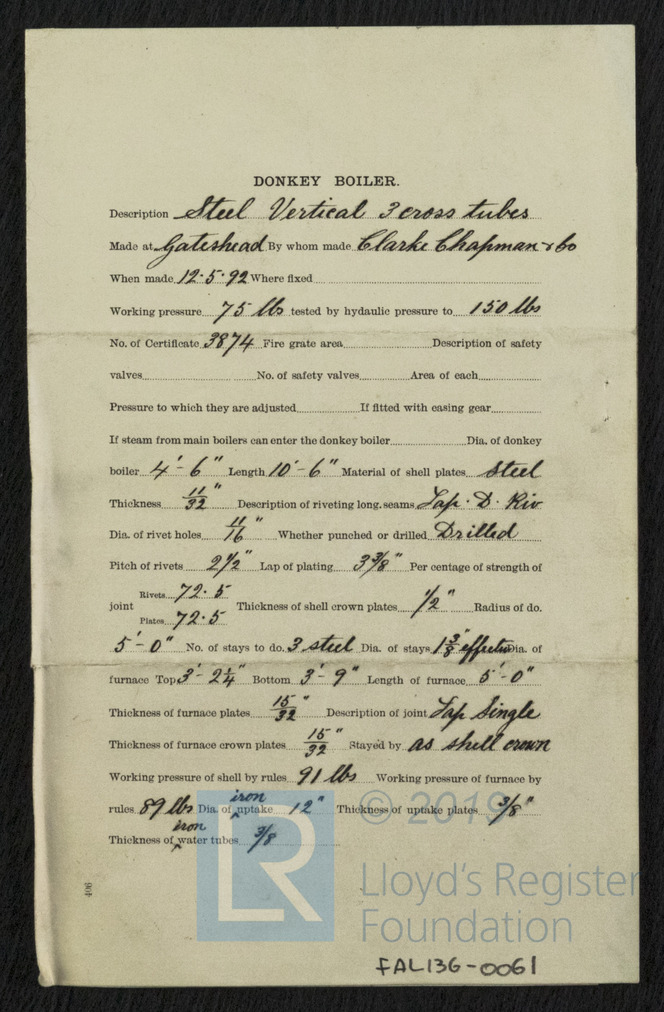 DONKEY BOILER.
Description Steel Vertical 3 cross tubes
Made at Gateshead By whom made Clarke Chapman & Co
When made 12.5.92 Where fixed
Working pressure 75 lbs tested by hydaulic pressure to 150 lbs
No. of Certificate 3874 Fire grate area Description of safety
valves No. of safety valves Area of each
Pressure to which they are adjusted If fitted with easing gear
If steam from main boilers can enter the donkey boiler Dia. of donkey
boiler 4'-6" Length 10'-6" Material of shell plates Steel
Thickness 11/32" Description of riveting long. seams Lap. D. Riv
Dia. of rivet holes 11/16" Whether punched or drilled Drilled
Pitch of rivets 2 1/2" Lap of plating 3 3/8" Per centage of strength of
joint Rivets 72.5 Plates 72.5 Thickness of shell crown plates 1/2" Radius of do.
5'-0" No. of stays to do. 3 steel Dia. of stays 1 3/8" effective Dia. of
furnace Top 3'-2 1/4" Bottom 3'-9" Length of furnace 5'-0"
Thickness of furnace plates 15/32" Description of joint Lap Single
Thickness of furnace crown plates 15/32" Stayed by as shell crown
Working pressure of shell by rules 91 lbs Working pressure of furnace by
rules 89 lbs Dia. of iron uptake 12" Thickness of uptake plates 3/8"
Thickness of iron water tubes 3/8
406
© 2019
LR
Lloyd's Register
Foundation
FAL136-0061